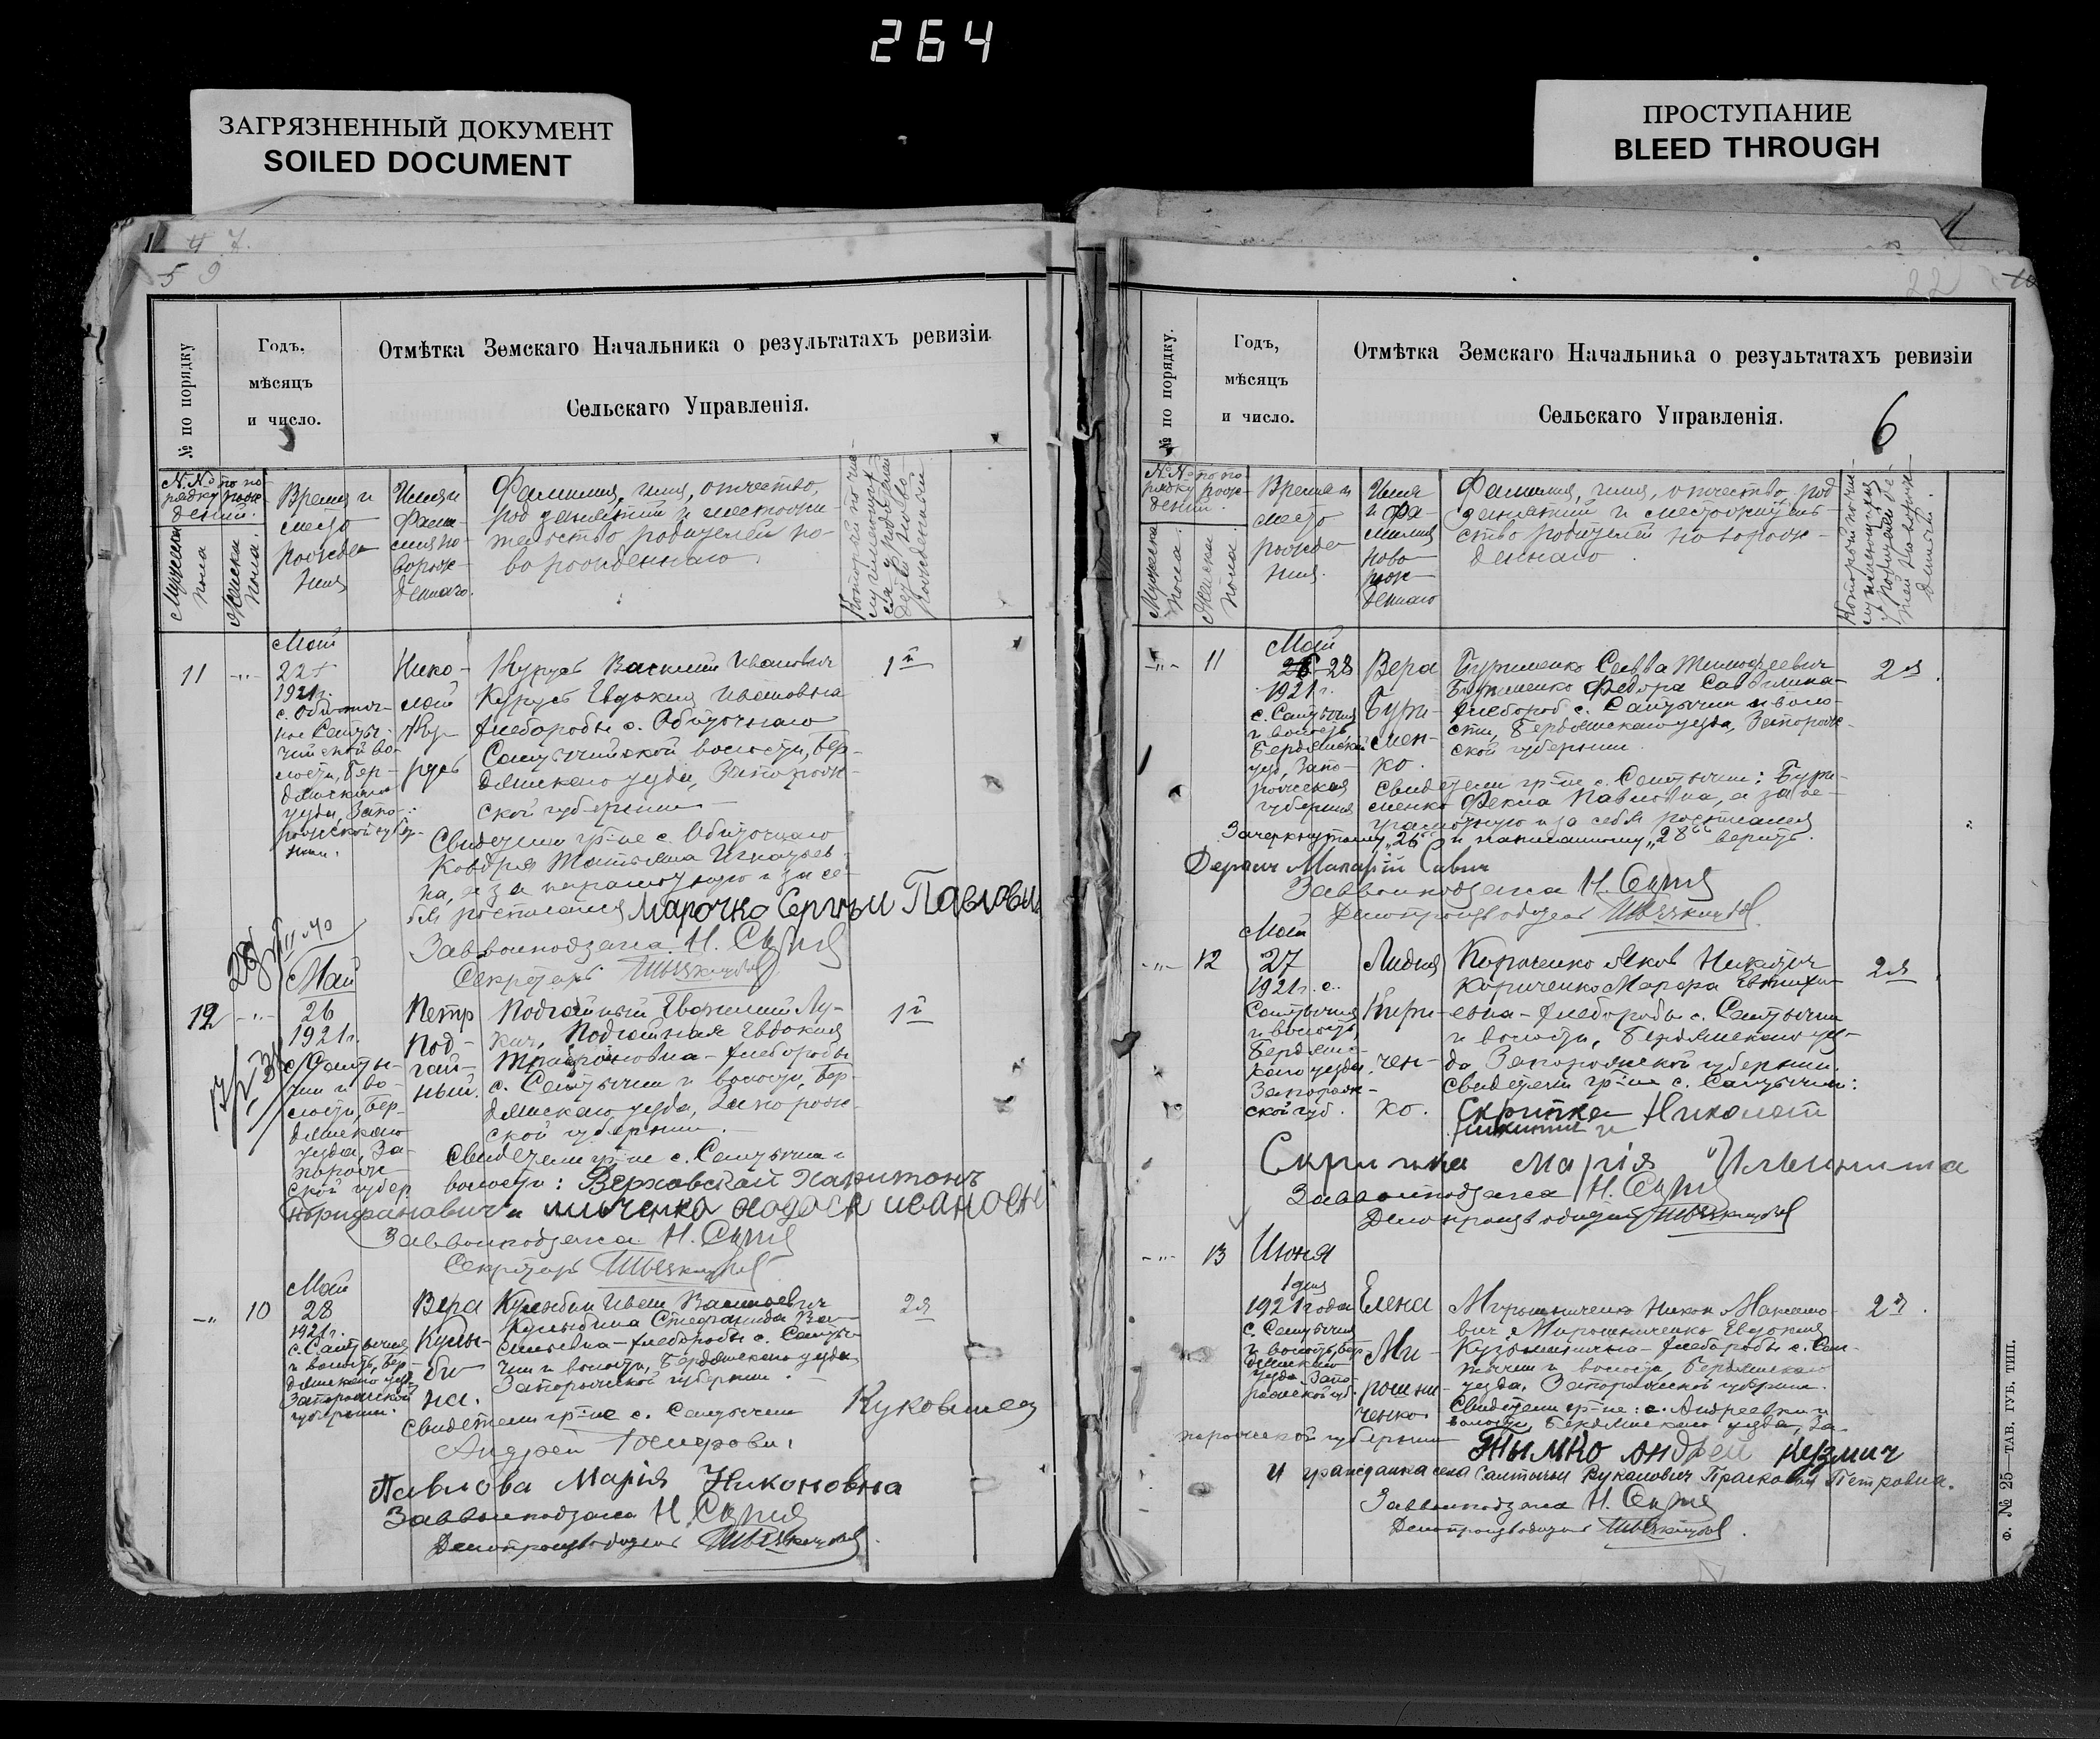 264
ЗАГРЯЗНЕННЫЙ ДОКУМЕНТ
SOILED DOCUMENT
ПРОСТУПАНИЕ
BLEED THROUGH
4 7.
5 9
№ по порядку
Годъ,
мѣсяцъ
и число.
Отмѣтка Земскаго Начальника о результатахъ ревизіи
Сельскаго Управленія.
N.N. по по-
рядку рож-
дений.
Мужска
пола
Женска
пола.
Время и
место
рожде
ния
Имя и
фами-
лия но-
ворож-
деннаго.
Фамилия, имя, отчество,
род занятий и местожи-
тельство родителей но-
ворожденнаго
Май
11 -"- 22
1921г.
с. Обиточ-
ное Салты-
чийской во-
лости, Бер-
дянскаго
уезда, Запо-
рожской губер-
нии.
Нико-
лай
Кур-
русь
Курусь Василий Иванович
Курусь Евдокия Ивановна
хлеборобы с. Обиточнаго
Салтычийской волости, Бер-
дянскаго уезда, Запорож-
ской губернии
1й
Свидетели гр-не с. Обиточнаго
Ковдря Татьяна Игнатьев-
на, а за неграмотную и за се-
бя росписался Марочко Сергъи Павлови
Завволподзага Н. Скря
Секретарь
Май
12 -"- 26
1921г.
с. Салты-
чии и во-
лости, Бер-
дянскаго
уезда, За-
порож-
ской губер
Петр
Под-
гай-
ный.
Подгайный Евгений Лу-
кич, Подгайная Евдокия
Трифоновна - хлеборобы
с. Салтычии и волости, Бер-
дянскаго уезда, Запорож-
ской губернии.
1й
Свидетели гр-не с. Салтычии и
волости: Верховский Харитонъ
Завволподзага Н. Скря
Секретарь
Май
-"- 10 28
1921г.
с. Салтычия
и волость, Бер-
дянскаго уезд.
Запорожской
губернии.
Вера
Кулы-
би
на.
Кулыбин Иван Васильевич
Кулыбина Степанида Ва-
сильевна - хлеборобы с. Салты-
чии и волости, Бердянскаго уезда
Запорожской губернии.
2я
Свидетели гр-не с. Салтычии
Андрей
Павлова Марія Никоновна
Завволподзага Н. Скря
Делопроизводитель
22
6
№ по порядку.
Годъ,
мѣсяцъ
и число.
Отмѣтка Земскаго Начальника о результатахъ ревизіи
Сельскаго Управленія.
N.N. по по-
рядку рож-
дений.
Мужска
пола.
Женска
пола.
Время и
место
рожде
ния.
Имя
и фа-
милия
ново-
рож-
деннаго
Фамилия, имя, отчество, род
занятий и местожитель-
ство родителей новорож-
деннаго
Май
-"- 11 26 28
1921г.
с. Салтычия
и волость
Бердянский
уезд, Запо-
рожская
губерния
Вера
Бури-
мен-
ко.
Буримен­ко Савва Тимофеевич
Бурименко Федора Саввична-
хлебороб с. Салтычии и воло-
сти, Бердянскаго уезда, Запорож-
ской губернии.
2я.
Свидетели гр-не с. Салтычии: Бури-
менко Фекла Павловна, а за не-
грамотную и за себя росписался
Зачеркнутому „26" и написанному „28" верить.
Деркич Макарій Савич
Завволподзага Н. Скря
Делопроизводитель
Май
-"- 12 27
1921г. с.
Салтычия
и волость,
Бердянс-
каго уезда
Запорож-
ской губ.
Лидия
Кири-
чен-
ко.
Кориченко Яков Никитич
Кориченко Марфа Евтихи-
евна - хлеборобы с. Салтычии
и волости, Бердянскаго уез-
да Запорожской губернии.
Свидетели гр-не с. Салтычии:
2я
Скрипка Николай
Никитич и
Скрипка Марія Ильинишна
Завволподзага Н. Скря
Делопроизводитель
-"- 13 Июня
1 дня
1921 года
с. Салтычия
и волость, Бер
дянскаго
уезда Запо-
рожской губ.
Елена
Ми-
рошни-
ченко
Мирошниченко Никон Макси­мо-
вич Мирошниченко Евдокия
Кузьминична - хлеборобы с. Сал-
тычии и волости, Бердянскаго
уезда, Запорожской губернии.
2я.
Свидетели гр-не: с. Андреевки и
волости, Бердянскаго уезда, За-
порожской губернии Тымко Андреи Кузмич
И гражданка села Салтычии Рукалович Прасковия Петровна.
Завволподзага Н. Скря
Делопроизводитель
Ф. № 25—ТАВ. ГУБ. ТИП.